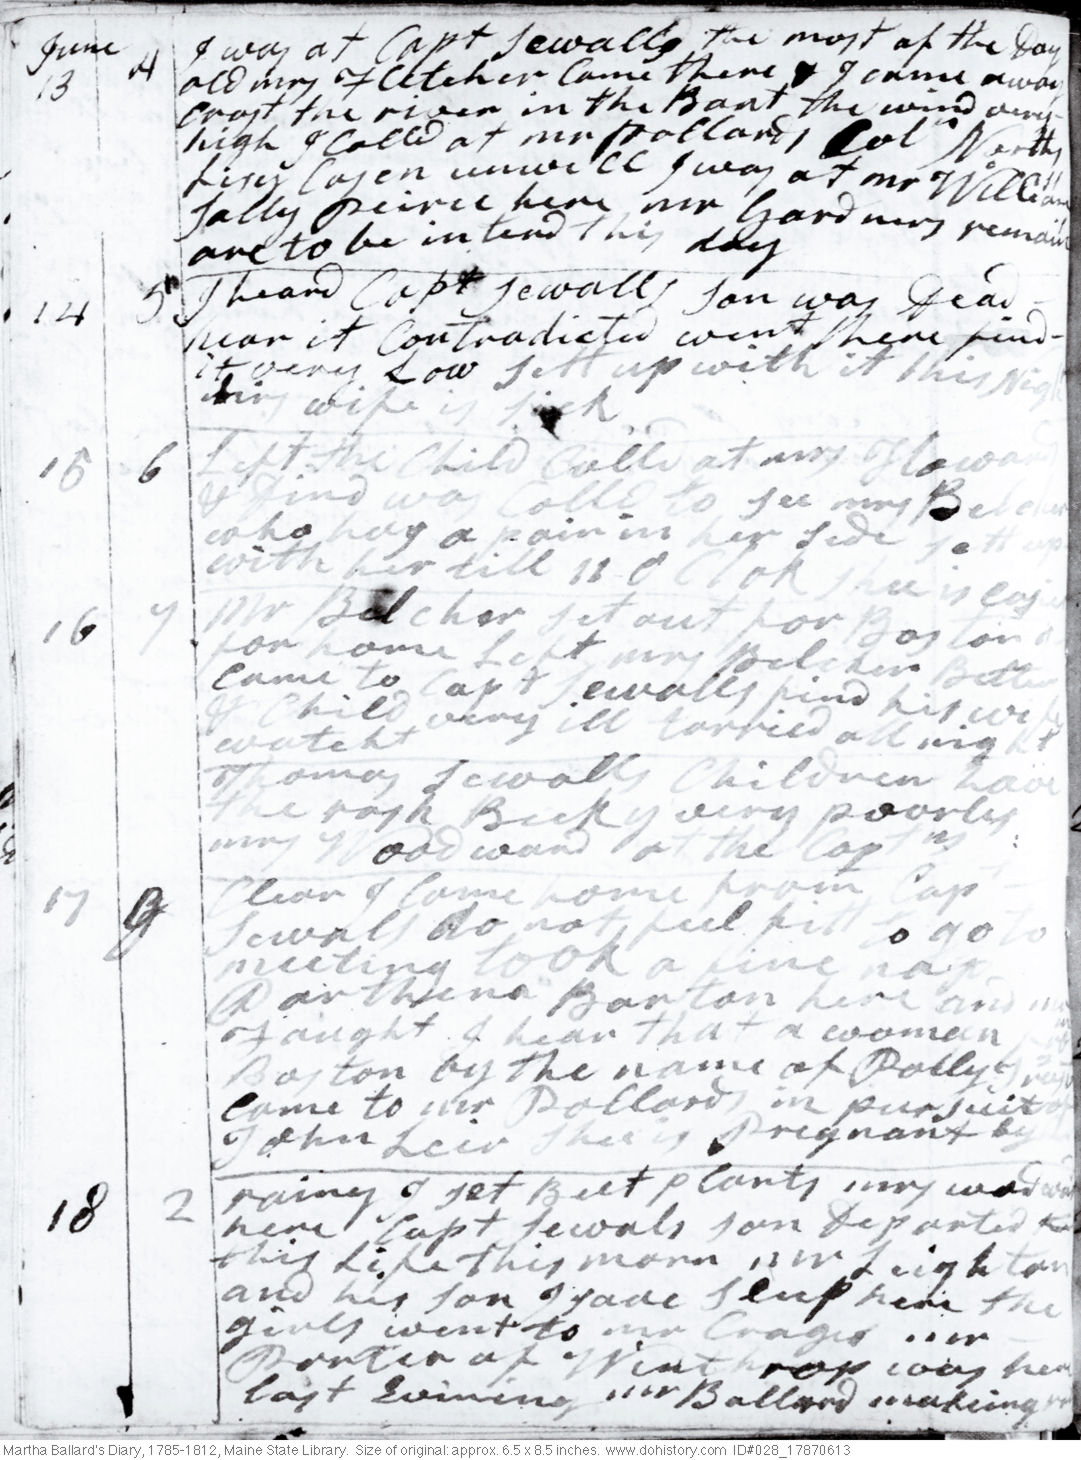 June 13 4 I was at Capt Sewalls the most of the Day
old mrs Fletcher Came there & I came away
Crost the river in the Boat the wind very
high I Calld at mr Pollards Col Norths
Lisy Casen unwell I was at mr Williams
Sally Peirce here mr Gardners remains
are to be interd this day
14 5 I heard Capt Sewalls son was Dead
hear it Contradicted went there find
it very Low sett up with it this Night
his wife is sick
15 6 Left the Child Calld at mrs Howard
& find was Calld to see mrs Belcher
who has a pain in her side sett up
with her till 11 O Clok shee is easier
16 7 Mr Belcher set out for Boston &
for home Left mrs Belcher Better
Came to Capt Sewalls find his wife
& Child very ill tarried all night
watcht
Thomas Sewalls Children have
the rash Becky very poorly
mrs Woodward at the Captns
17 G Clear I Came home from Capt
Sewals do not feel fitt to go to
meeting took a fine nap
Parthena Barton here and
I hear that a woman
Boston by the name of Polly
Came to mr Pollards in pursuit of
John Leiv shee is Pregnant by
18 2 rainy I set Beet plants mrs woodward
here Capt Sewals son Departed
this Life this morn mr Leighton
and his son Isaac sleep here the
girls went to mr Crages mr
Porter of Winthrop was here
last Evining mr Ballard makeing
Martha Ballard's Diary, 1785-1812, Maine State Library. Size of original: approx. 6.5 x 8.5 inches. www.dohistory.com ID#028_17870613